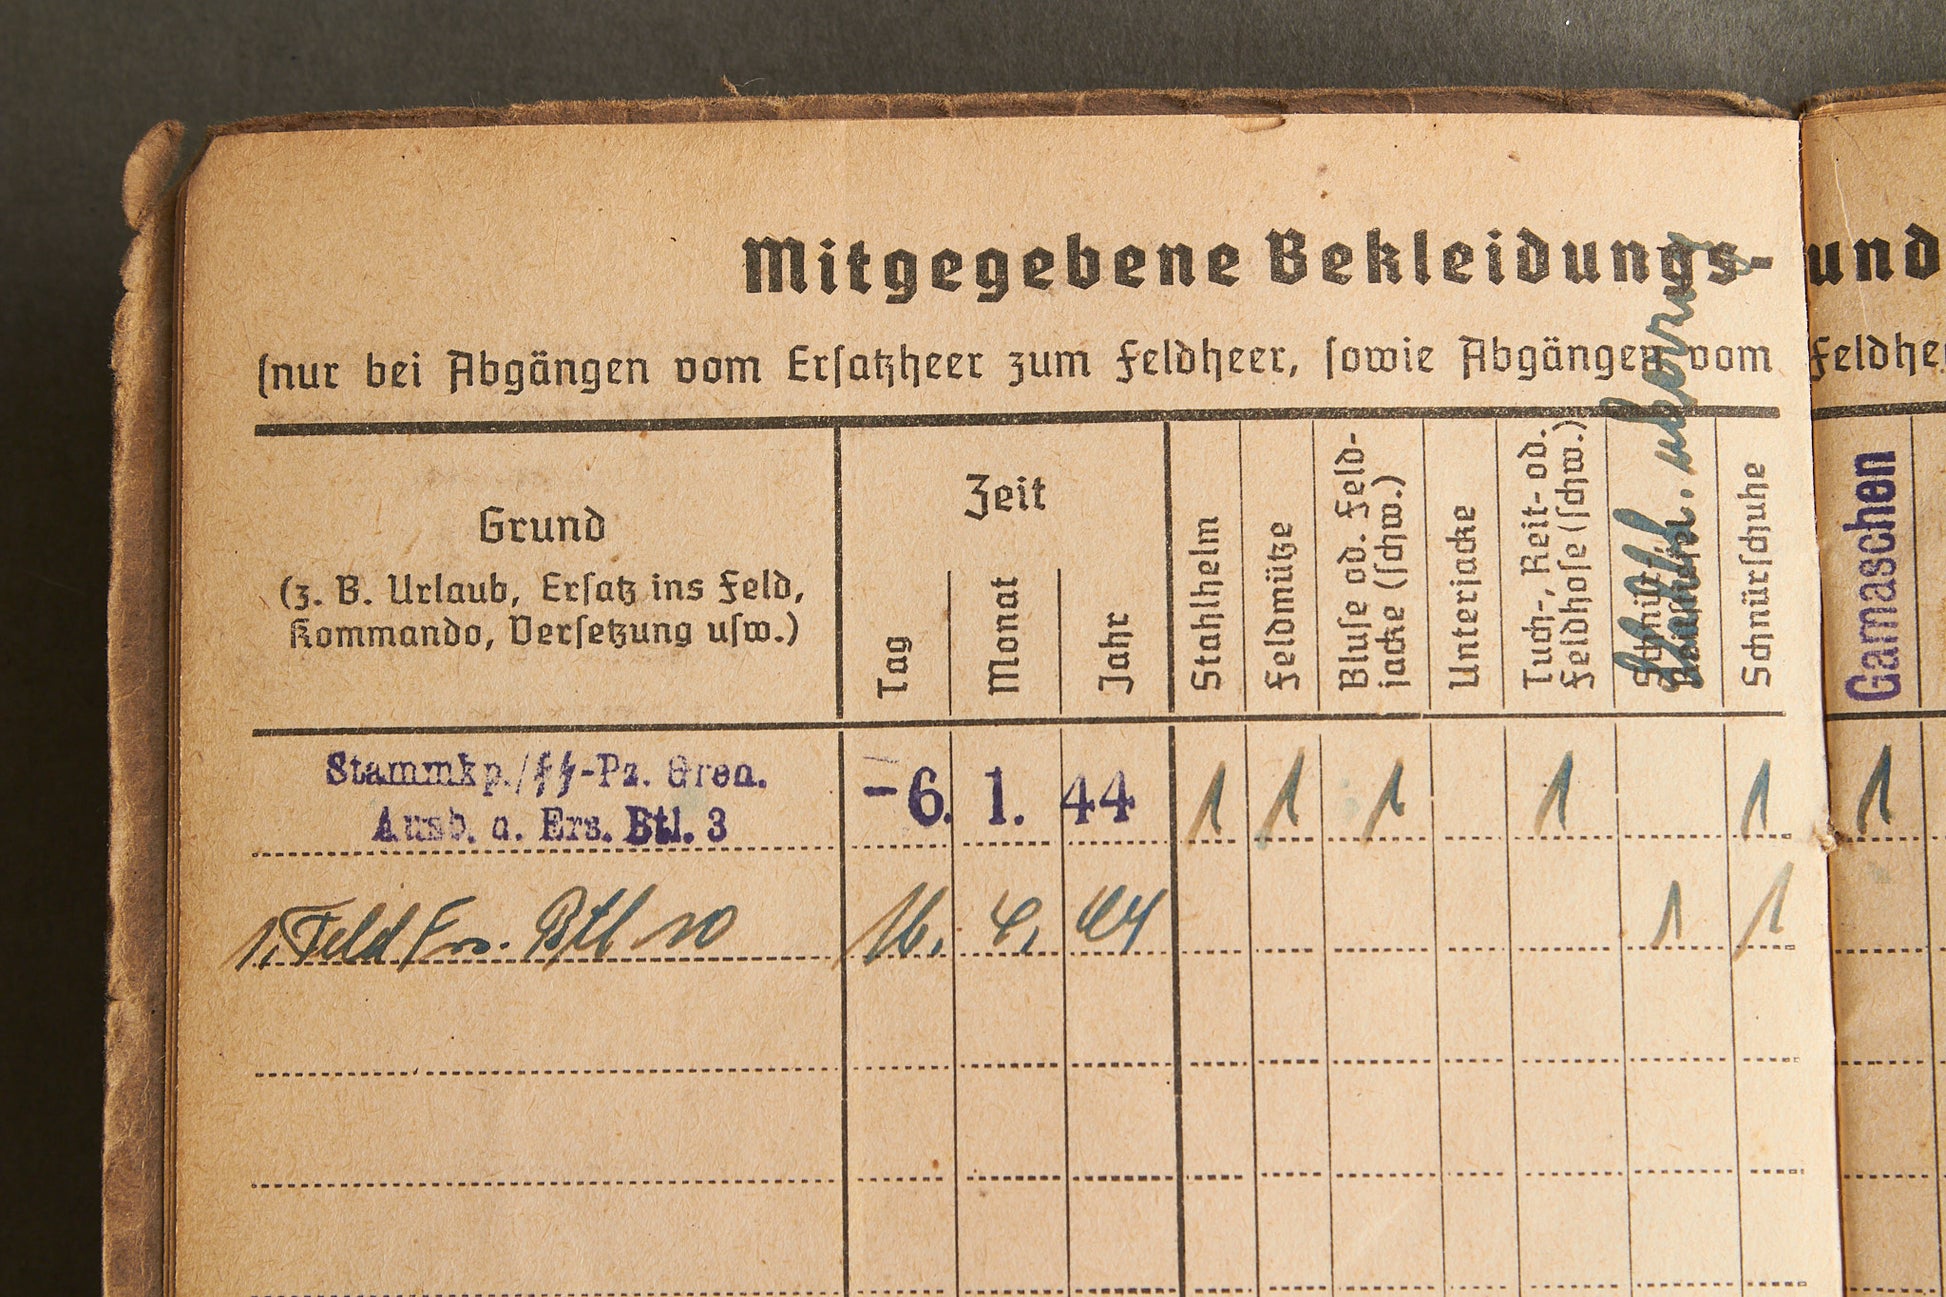 Mitgegebene Bekleidungs- und
(nur bei Abgängen vom Ersatzheer zum Feldheer, sowie Abgängen vom Feldhe
Grund
(z. B. Urlaub, Ersatz ins Feld,
Kommando, Versetzung usw.)
Zeit
Tag
Monat
Jahr
Stahlhelm
Feldmütze
Bluse od. Feld-
jacke (schw.)
Unterjacke
Tuch-, Reit- od.
Feldhose (schw.)
Schnürschuhe
Gamaschen
Stammkp./SS-Pz. Gren.
Ausb. u. Ers. Btl. 3
-6. 1. 44 1 1 1 1 1 1
1. Feld Ers. Btl 10 16. 4. 44 1 1